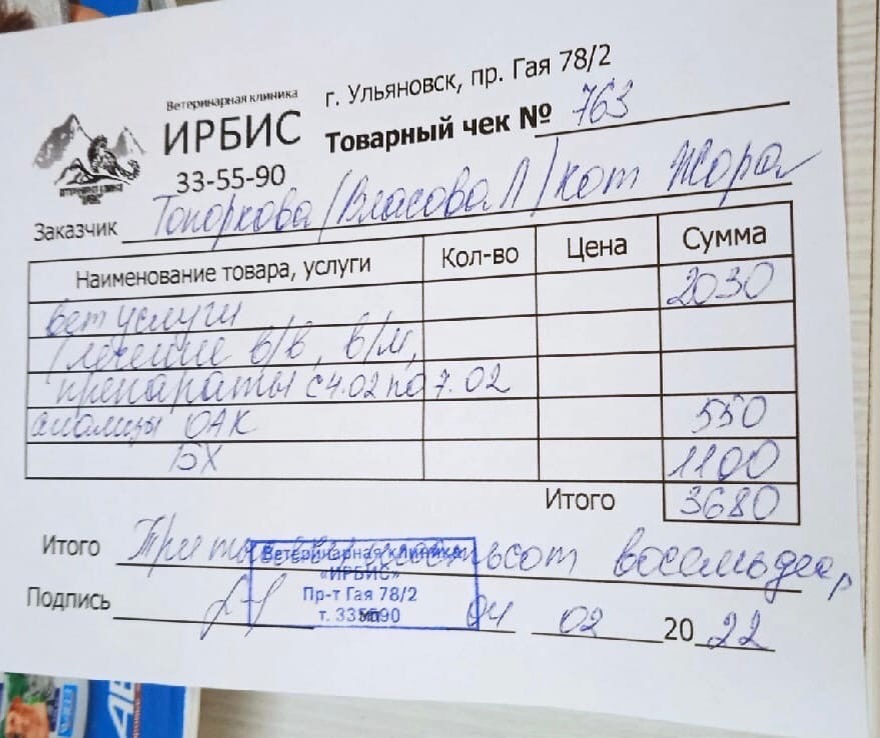 Ветеринарная клиника
ИРБИС
33-55-90
г. Ульяновск, пр. Гая 78/2
Товарный чек № 763
Заказчик Топоркова/Власова Л/кот Жора
Наименование товара, услуги Кол-во Цена Сумма
вет услуги 2030
(лечение в/в, в/м,
препараты с 4.02 по 7.02
анализы ОАК 550
БХ 1100
Итого 3680
Итого Три тысячи шестьсот восемьдес, р
Ветеринарная клиника
«ИРБИС»
Пр-т Гая 78/2
т. 335590
Подпись 04 02 2022